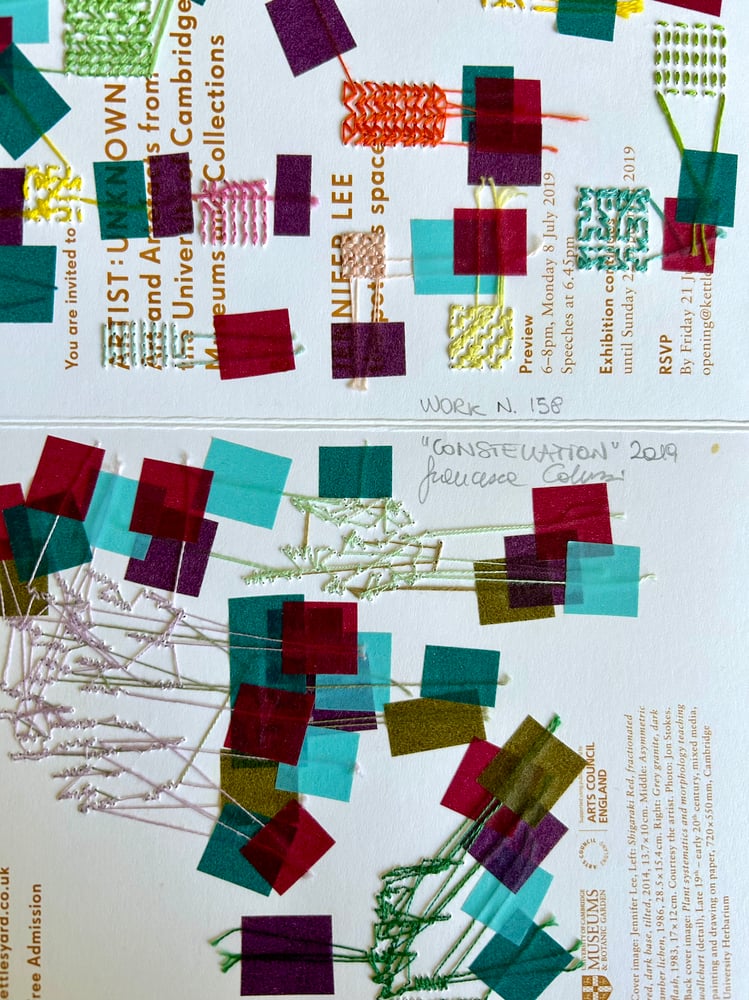 You are invited to
ARTIST: UNKNOWN
Art and Artefacts from
the University of Cambridge
Museums and Collections
JENNIFER LEE
space
Preview
6–8pm, Monday 8 July 2019
Speeches at 6.45pm
Exhibition
until Sunday 2 2019
RSVP
By Friday 21 Ju
opening@kettle
WORK N. 158
"CONSTELLATION" 2019
Francesca Colussi
ettlesyard.co.uk
ree Admission
Supported using public funding by
ARTS COUNCIL
ENGLAND
UNIVERSITY OF CAMBRIDGE
MUSEUMS
& BOTANIC GARDEN
Cover image: Jennifer Lee, Left: Shigaraki Red, fractionated
ed, dark base, tilted, 2014, 13.7 × 10 cm. Middle: Asymmetric
mber lichen, 1986, 28.5 × 15.4 cm. Right: Grey granite, dark
ash, 1983, 17 × 12 cm. Courtesy the artist. Photo: Jon Stokes.
Back cover image: Plant systematics and morphology teaching
wallchart (detail), Late 19th – early 20th century, mixed media,
painting and drawing on paper, 720 × 550 mm, Cambridge
University Herbarium